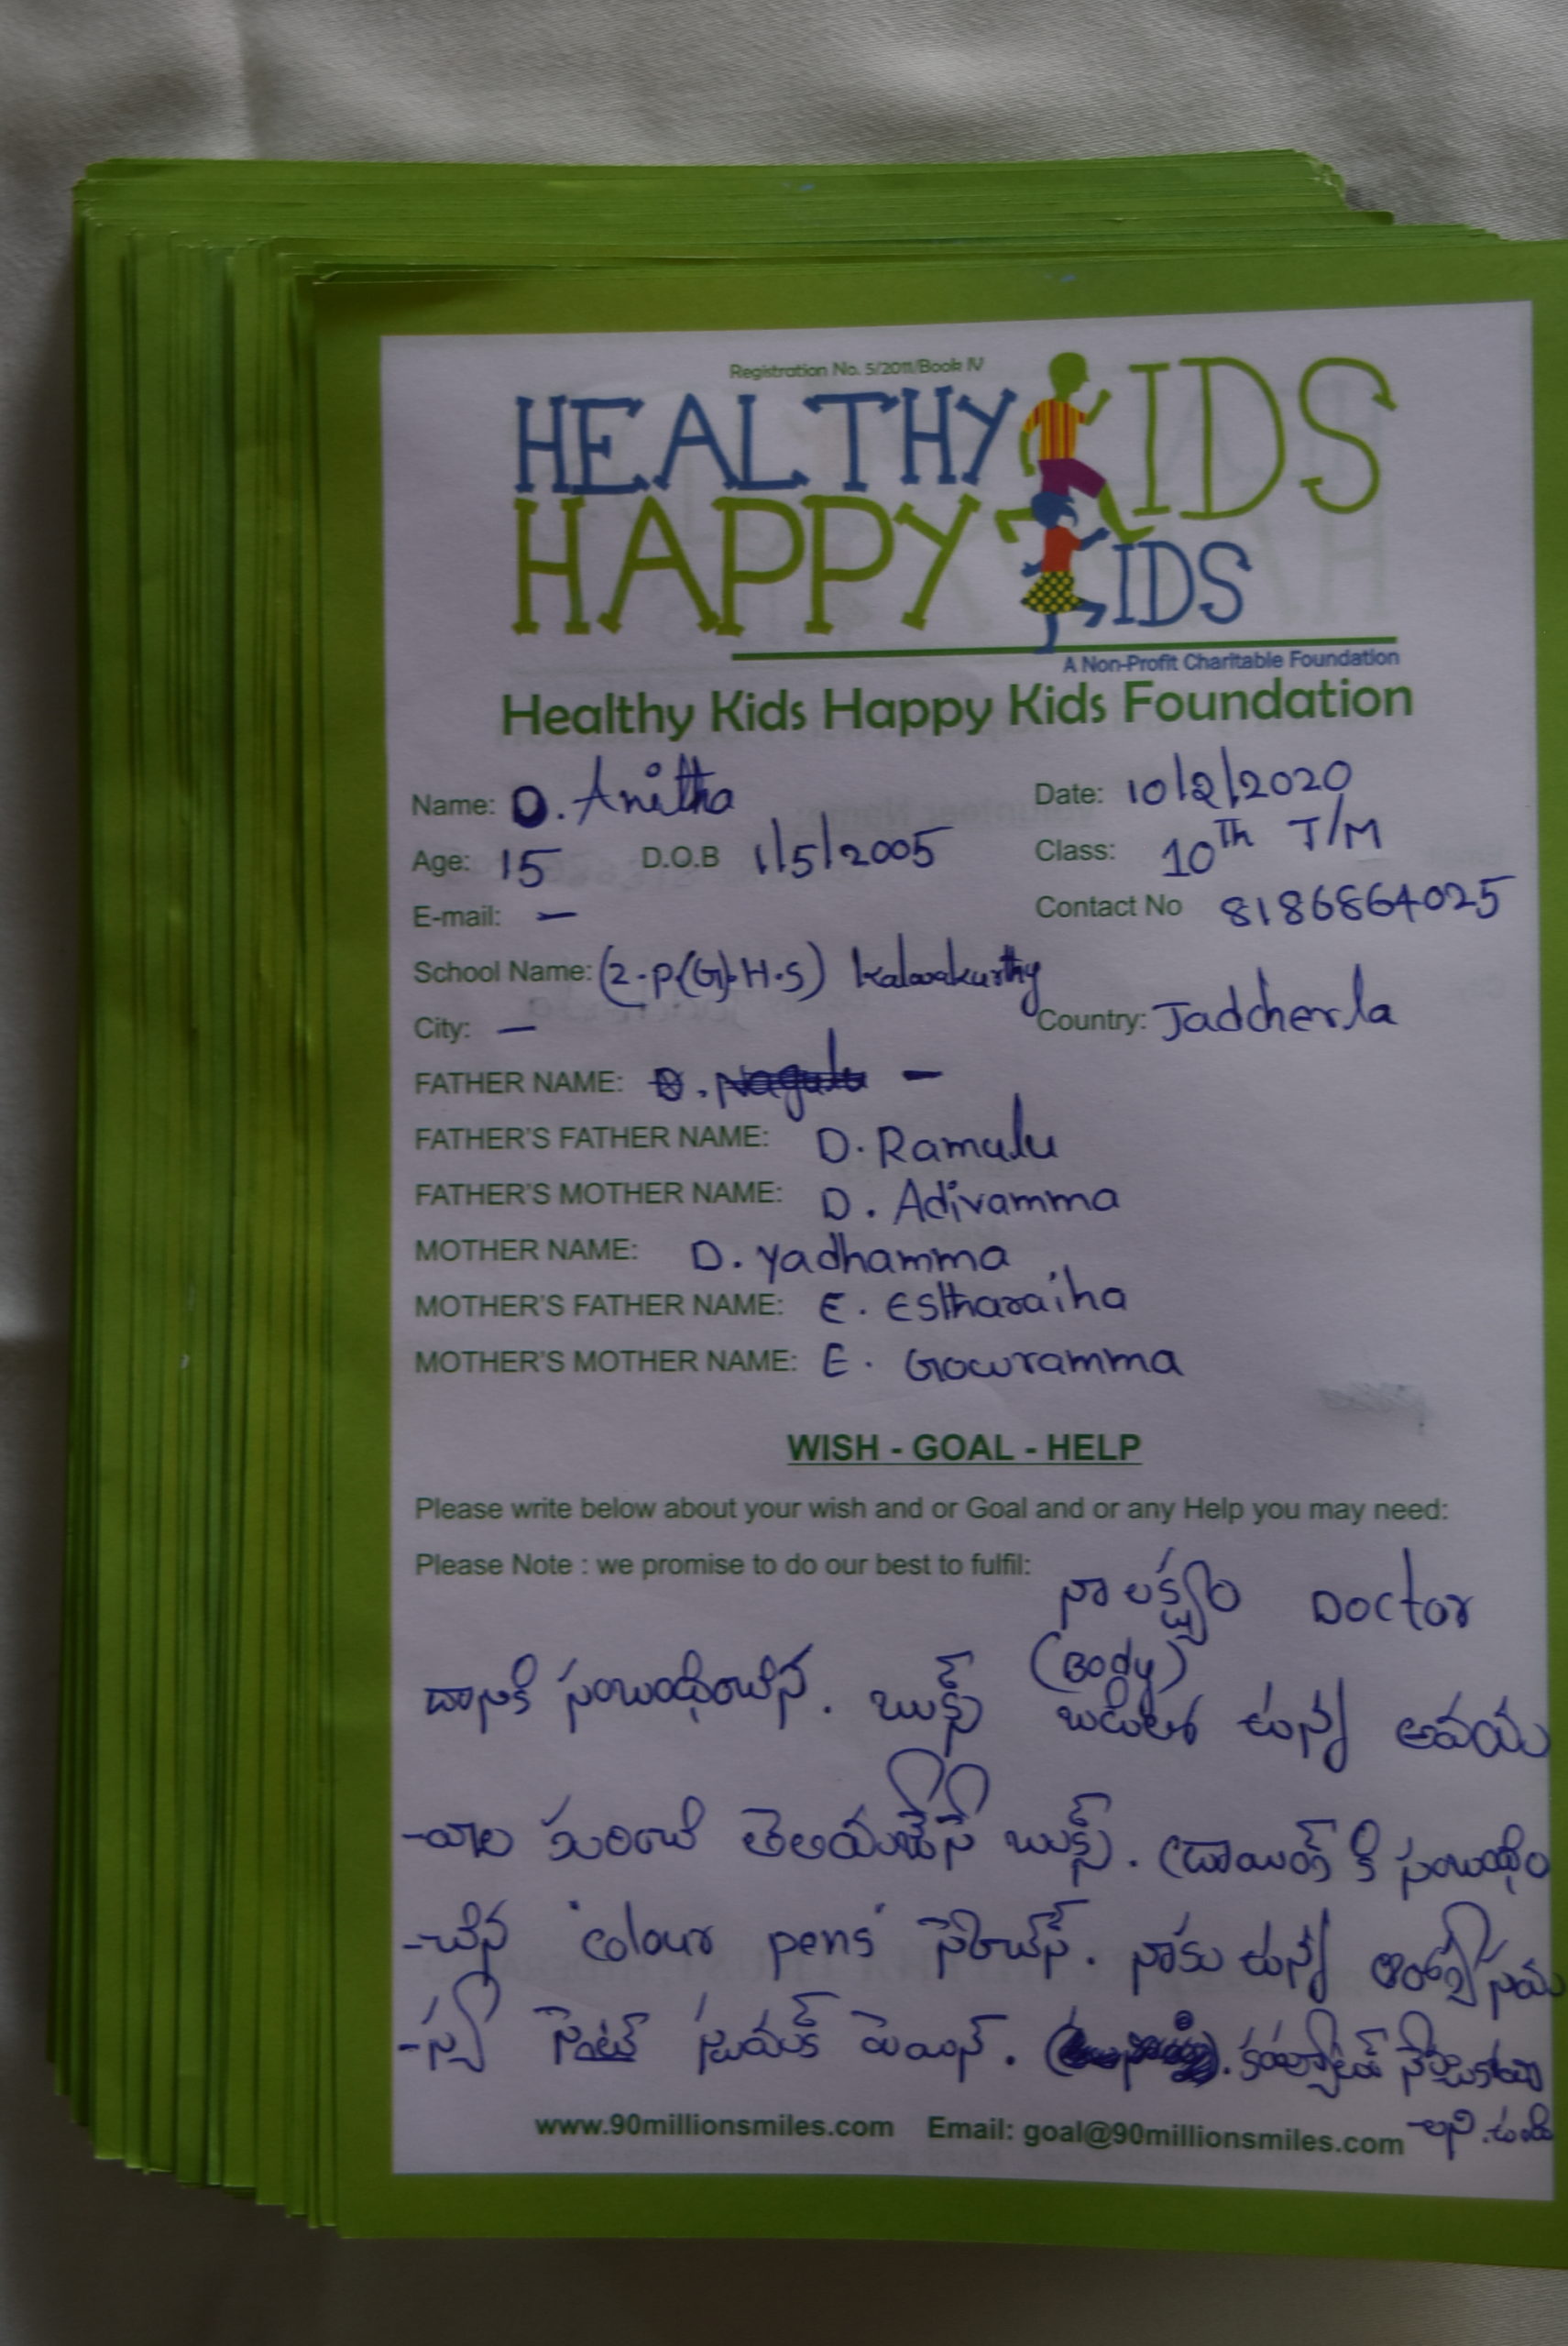 Registration No. 5/2011/Book IV
HEALTHY KIDS
HAPPY KIDS
A Non-Profit Charitable Foundation
Healthy Kids Happy Kids Foundation
Name: D. Anitha Date: 10/2/2020
Age: 15 D.O.B 1/5/2005 Class: 10th T/M
E-mail: — Contact No 8186864025
School Name: (Z.P(G).H.S) Kalwakurthy
City: — Country: Jadcherla
FATHER NAME: D. Nagulu —
FATHER'S FATHER NAME: D. Ramulu
FATHER'S MOTHER NAME: D. Adivamma
MOTHER NAME: D. Yadhamma
MOTHER'S FATHER NAME: E. Estharaiha
MOTHER'S MOTHER NAME: E. Gowramma
WISH - GOAL - HELP
Please write below about your wish and or Goal and or any Help you may need:
Please Note : we promise to do our best to fulfil: నా లక్ష్యం Doctor
(Body)
దానికి సంబంధించిన. బుక్స్ బడిలో ఉన్న అవయ
-వాల గురించి తెలియజేసే బుక్స్. డ్రాయింగ్ కి సంబంధిం
-చిన 'colour pens' పెన్సిల్స్. నాకు ఉన్న ఆరోగ్య సమ
-స్య స్టమక్ పెయిన్. కంప్యూటర్ నేర్చుకోవా
-లని. ఉంది
www.90millionsmiles.com Email: goal@90millionsmiles.com